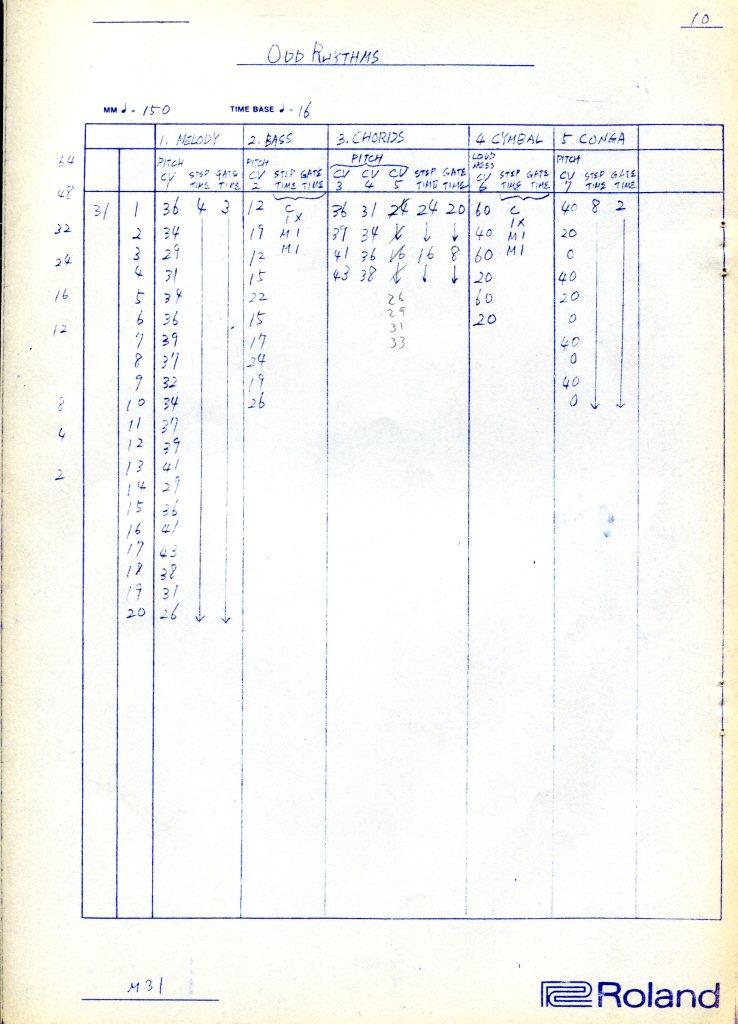 10
ODD RHYTHMS
MM ♩ - 150 TIME BASE ♩ - 16
1. MELODY 2. BASS 3. CHORDS 4 CYMBAL 5 CONGA
PITCH CV 1 STEP TIME GATE TIME PITCH CV 2 STEP TIME GATE TIME PITCH CV 3 CV 4 CV 5 STEP TIME GATE TIME LOUDNESS CV 6 STEP TIME GATE TIME PITCH CV 7 STEP TIME GATE TIME
64
48
32
24
16
12
8
4
2
31 1 36 4 3 12 C 36 31 24 24 20 60 C 40 8 2
1X 1X
2 34 19 M1 39 34 ↓ ↓ 40 M1 20
3 29 12 M1 41 36 16 16 8 60 M1 0
4 31 15 43 38 ↓ ↓ 20 40
5 34 22 26 60 20
6 36 15 29 20 0
7 39 17 31 40
8 37 24 33 0
9 32 19 40
10 34 26 0
11 37
12 39
13 41
14 29
15 36
16 41
17 43
18 38
19 31
20 26
M31
Roland